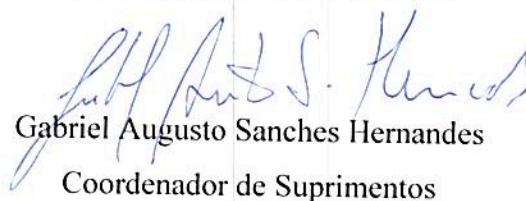 Gabriel Augusto Sanches Hernandes
Coordenador de Suprimentos